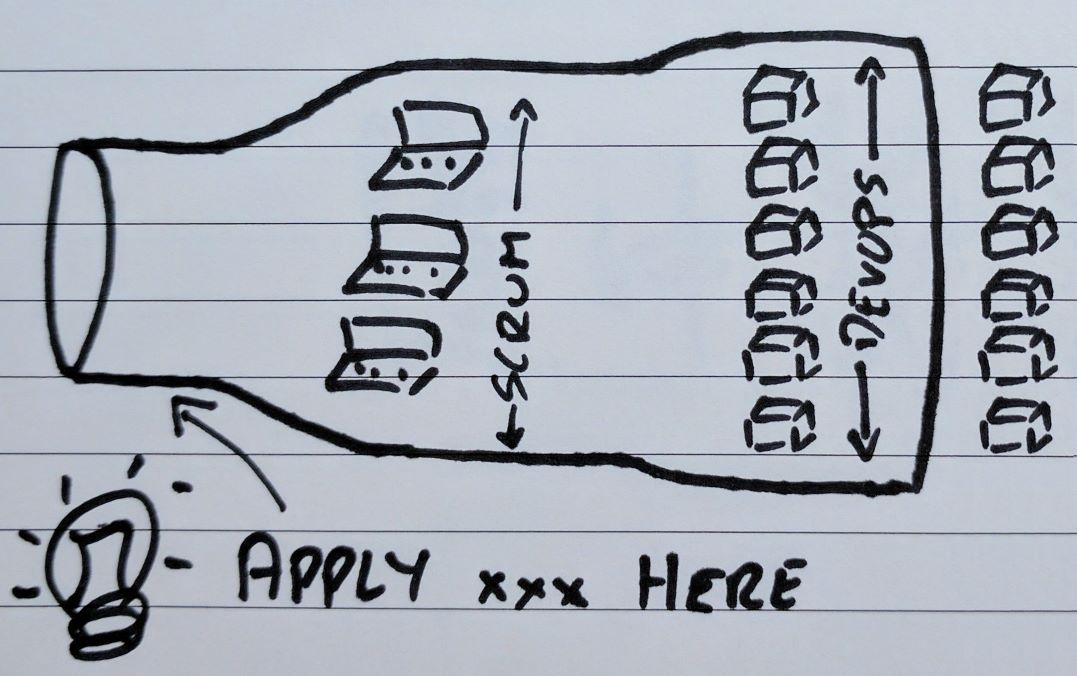 SCRUM
DEVOPS
APPLY xxx HERE